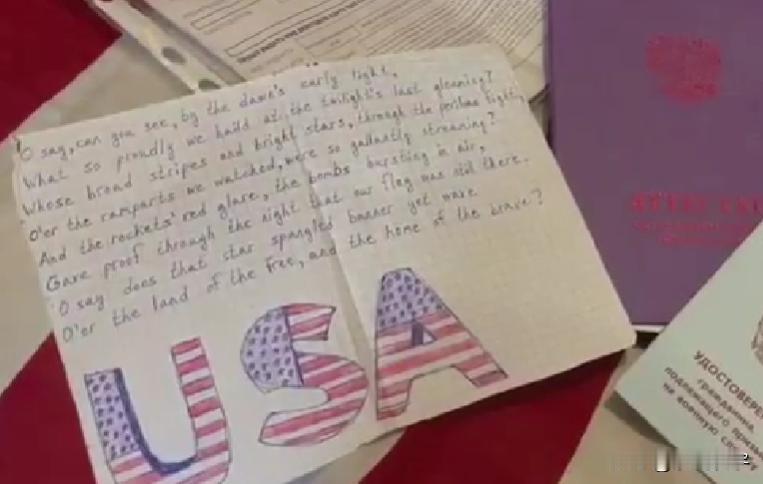 O say, can you see, by the dawe's early light,
What so proudly we haild at the twilight's last gleaming?
Whose broad stripes and bright stars, through the perilous fight,
O'er the ramparts we watched, were so gallantly streaming?
And the rockets' red glare, the bombs bursting in air,
Gave proof through the night that our flag was still there.
O say does that star spangled banner yet wave
O'er the land of the free, and the home of the brave?
USA
УДОСТОВЕРЕ
гражданина,
подлежащего призы
на военную служ